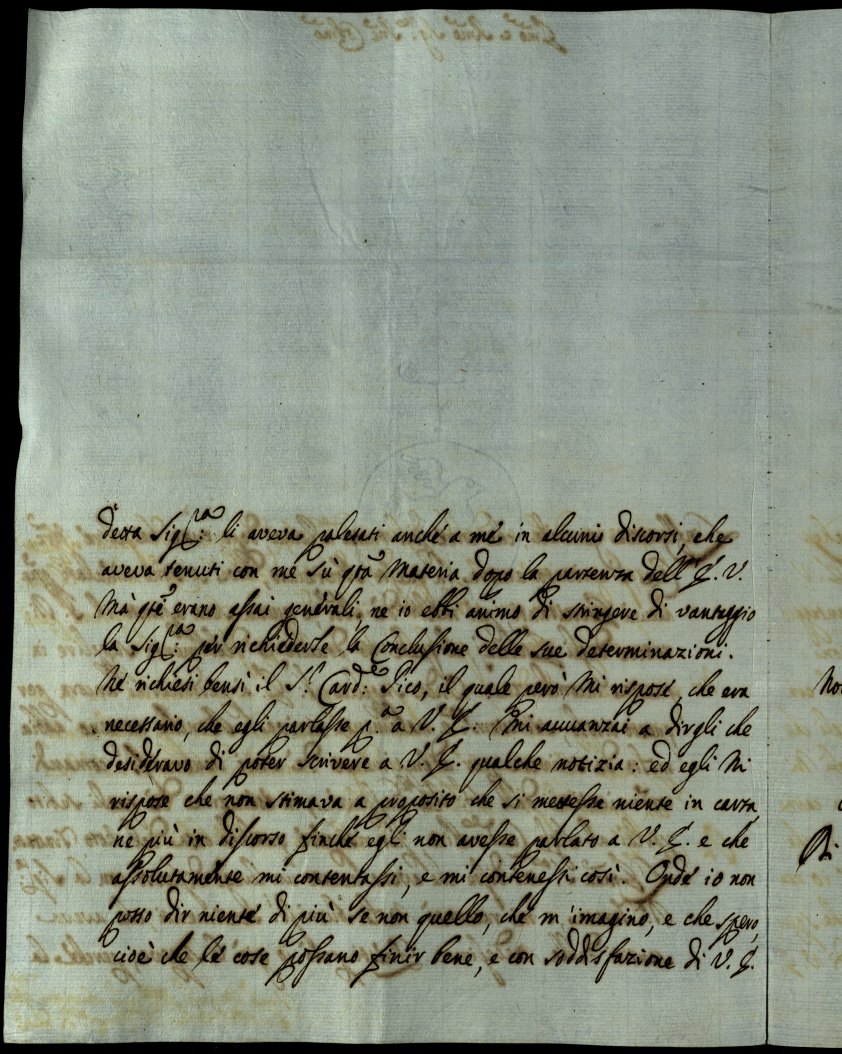 detta Sig:ra li aveva palesati anche a me in alcuni discorsi, che
aveva tenuti con me sù q.ta materia dopo la partenza dell'E. V.
Mà q.ti erano assai generali, ne io ebbi animo di stringere di vantaggio
la Sig:ra per richiederle la Conclusione delle sue determinazioni.
Ne richiesi bensì il S.r Card:le Pico, il quale però mi rispose, che era
necessario, che egli parlasse p.a a V. E: Mi avvanzai a dirgli che
desideravo di poter scrivere a V. E. qualche notizia: ed egli mi
rispose che non stimava a proposito che si mettesse niente in carta,
ne più in discorso finché egli non avesse parlato a V. E. e che
assolutamente mi contentassi, e mi contenessi così. Onde io non
posso dir niente di più se non quello, che m'imagino, e che spero,
cioè che le cose possano finir bene, e con soddisfazione di V. E.